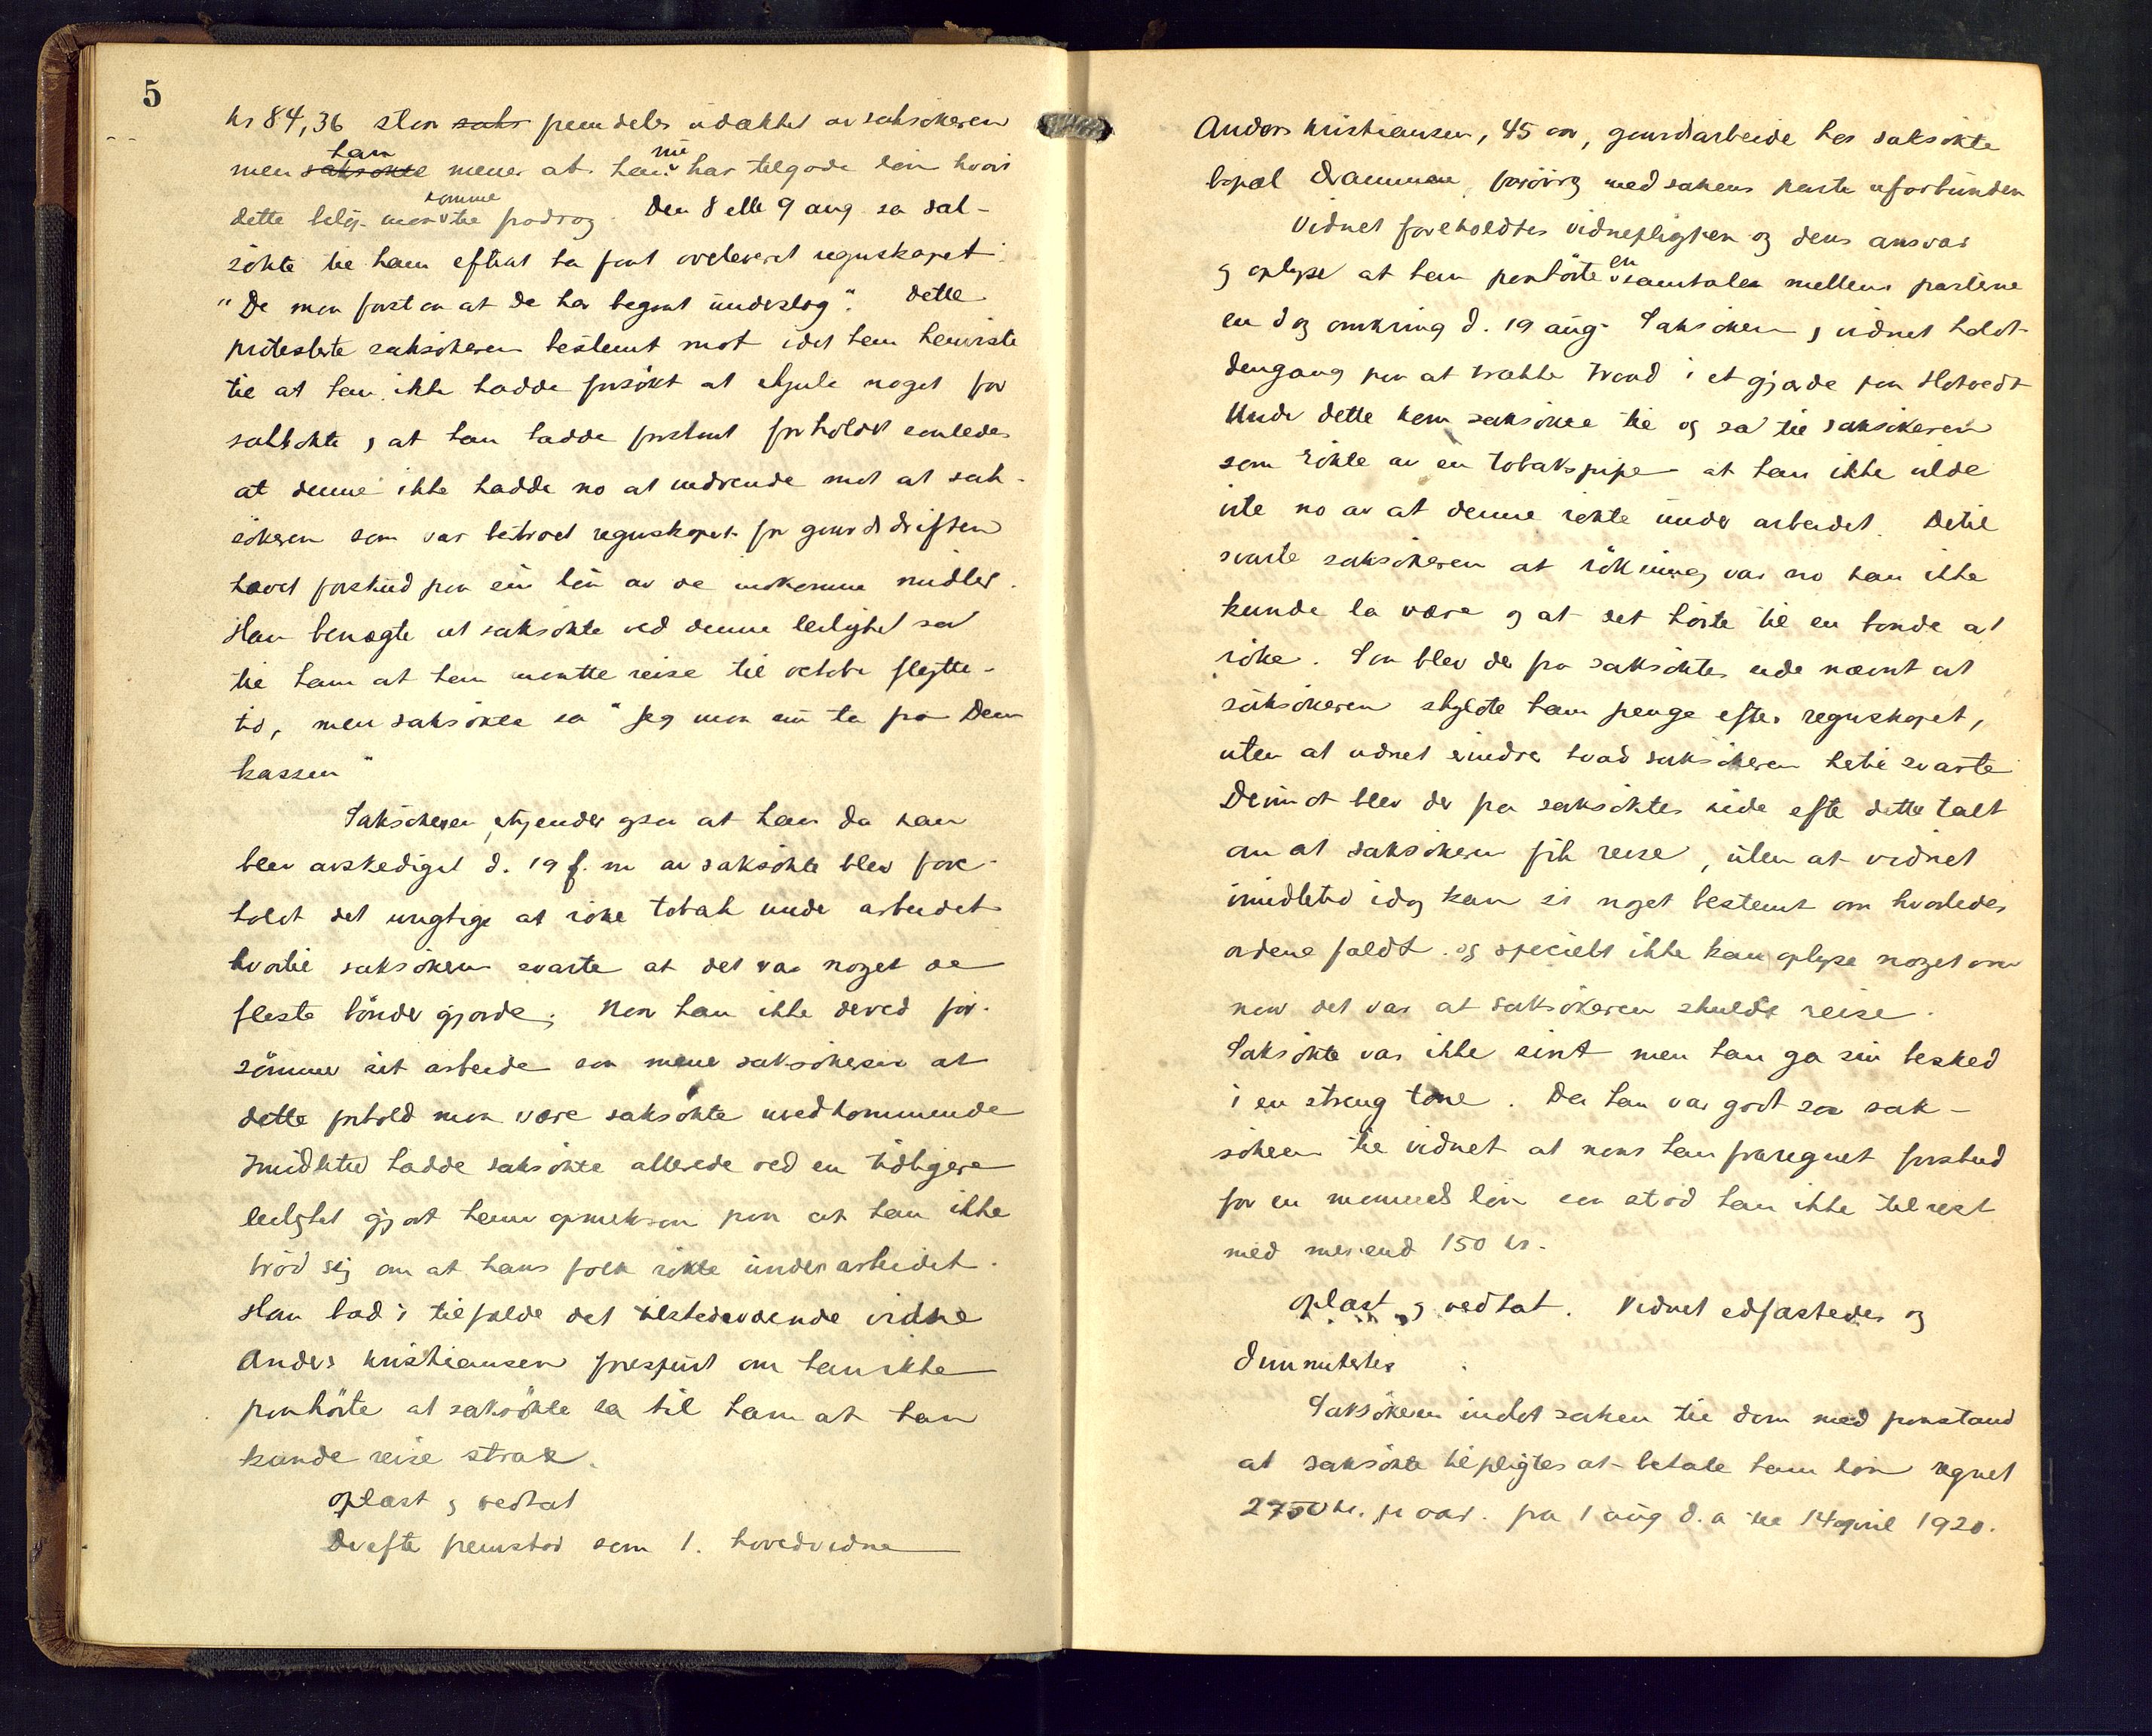 5
kr 84,36 staar saks fremdeles udækket av saksökeren
men saksökte han mener at han nu har tilgode lön hvori
dette belöp maatte komme til fradrag. Den 8 elle 9 aug sa sak-
sökte til ham efterat ha faat overleveret regnskapet:
"De maa forstaa at De har begaat underslag". Dette
protesterte saksökeren bestemt mot idet han henviste
til at han ikke hadde forsökt at skjule noget for
saksökte, at han hadde forstaat forholdet saaledes
at denne ikke hadde no at indvende mot at sak-
sökeren som var betroet regnskapet for gaardsdriften
hævet forskud paa sin lön av de indkomne midler.
Han benægte at saksökte ved denne leilighet sa
til ham at han maatte reise til octobe flytte-
tid, men saksökte sa "Jeg maa nu ta fra Dem
kassen"
Saksökeren erkjender ogsaa at han da han
blev avskediget d. 19 f. m av saksökte blev fore-
holdt det urigtige at röke tobak unde arbeidet
hvortil saksökeren svarte at det var noget de
fleste bönder gjorde. Naar han ikke derved for-
sömmer sit arbeide saa mener saksökeren at
dette forhold maa være saksökte uvedkommende
Imidlertid hadde saksökte allerede ved en tidligere
leilighet gjort ham opmerksom paa at han ikke
bröd sig om at hans folk rökte under arbeidet.
Han bad i tilfælde det tilstedeværende vidne
Anders Kristiansen forespurt om han ikke
paahörte at saksökte sa til ham at han
kunde reise strax.
Oplæst og vedtat
Derefte fremstod som 1. hovedvidne
Anders Kristiansen, 45 aar, gaardsarbeide hos saksökte
bopæl Drammen, forövrig med sakens parte uforbunden
Vidnet foreholdtes vidnepligten og dens ansvar
og oplyse at han paahörte en samtale mellem parterne
en dag omkring d. 19 aug. Saksökeren og vidnet holdt
dengang paa at trække traad i et gjærde paa Hotvedt
Unde dette kom saksökte til og sa til saksökeren
som rökte av en tobakspipe at han ikke vilde
vite no av at denne rökte under arbeidet. Dertil
svarte saksökeren at rökning var no han ikke
kunde la være og at det hörte til en bonde at
röke. Saa blev der fra saksöktes side nævnt at
saksökeren skyldte ham penge efter regnskapet,
uten at vidnet erindrer hvad saksökeren hertil svarte
Derimot blev der fra saksöktes side efte dette talt
om at saksökeren fik reise, uten at vidnet
imidlertid idag kan si noget bestemt om hvorledes
ordene faldt og specielt ikke kan oplyse noget om
naar det var at saksökeren skulde reise.
Saksökte var ikke sint men han ga sin besked
i en streng tone. Da han var gaat sa sak-
sökeren til vidnet at naar han fraregnet forskud
for en maaned lön saa stod han ikke til rest
med mer end 150 kr.
Oplæst og vedtat. Vidnet edfæstedes og
dimmitertes
Saksökeren indlot saken til dom med paastand
at saksökte tilpligtes at betale ham lön regnet
2700 kr. pr aar. fra 1 aug d. a til 14 april 1920.